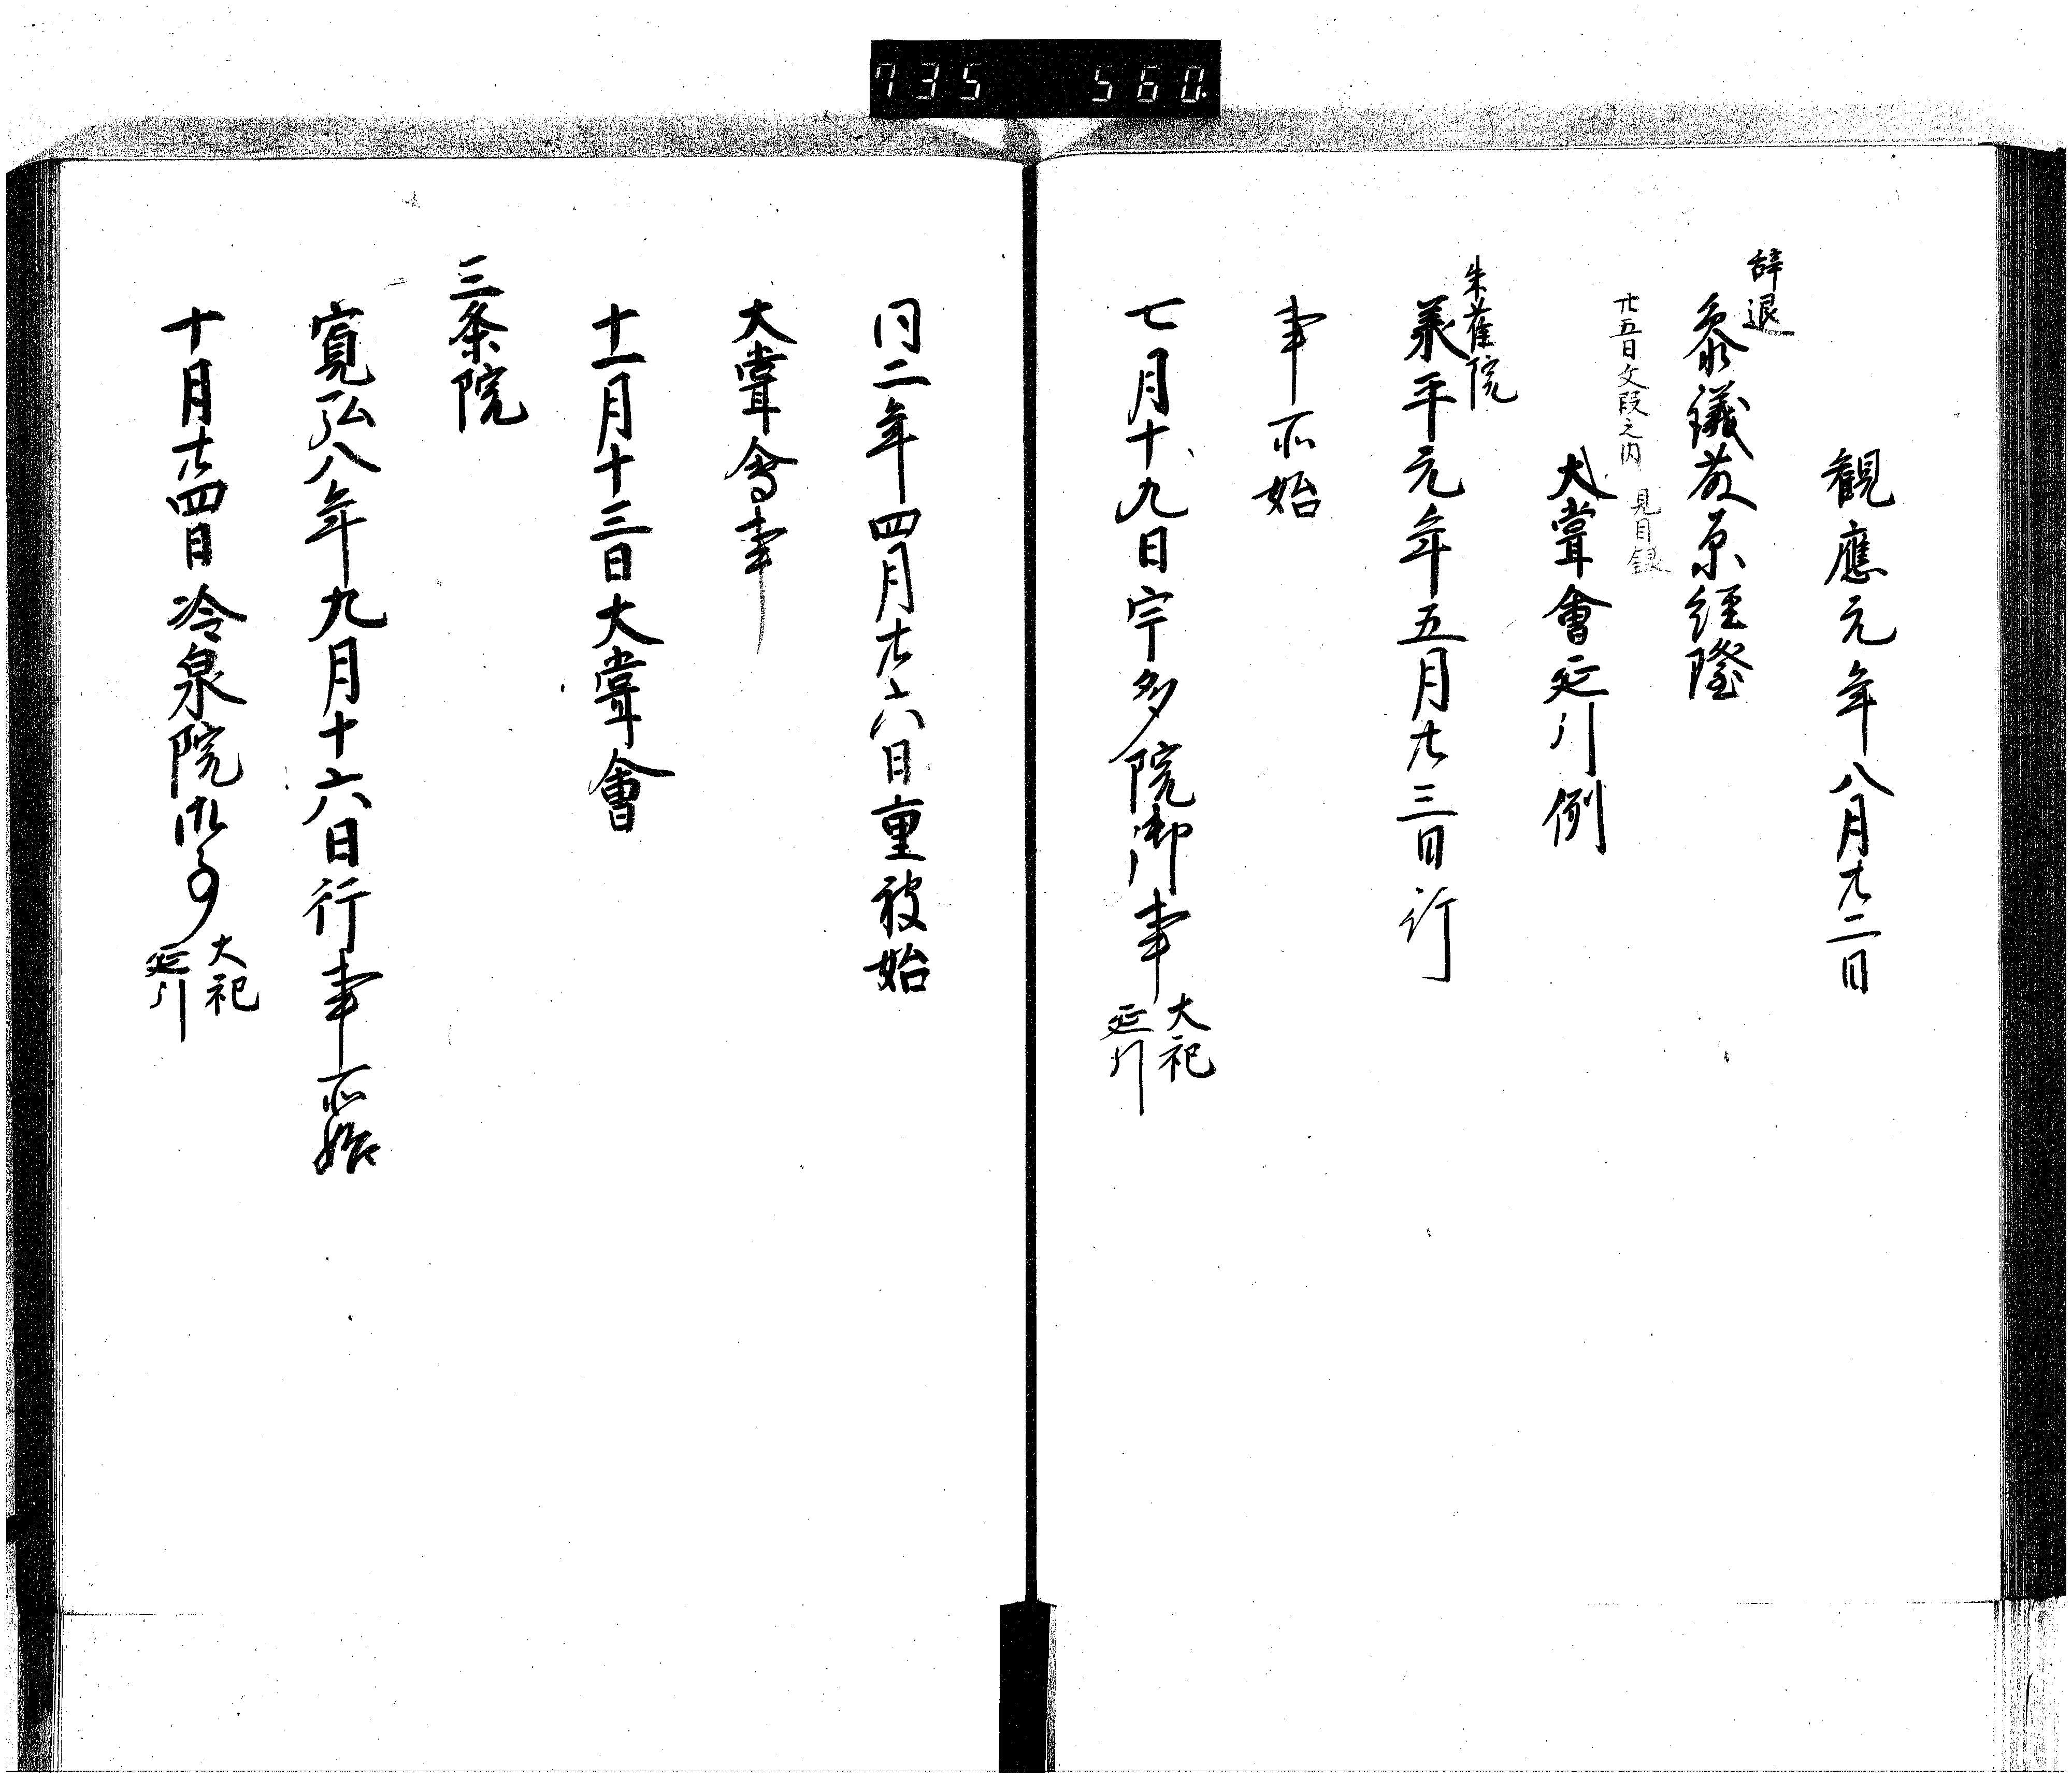 735 560
觀應元年八月廿二日
辞退
參議藤原経隆
廿五日文段之内 見目録
大嘗會延引例
朱雀院
承平元年五月廿三日行
事所始
七月十九日宇多院御事 大祀延引
同二年四月廿六日重被始
大嘗會事
十一月十三日大嘗會
三条院
寛弘八年九月十六日行事所始
十月廿四日冷泉院御事 大祀延引